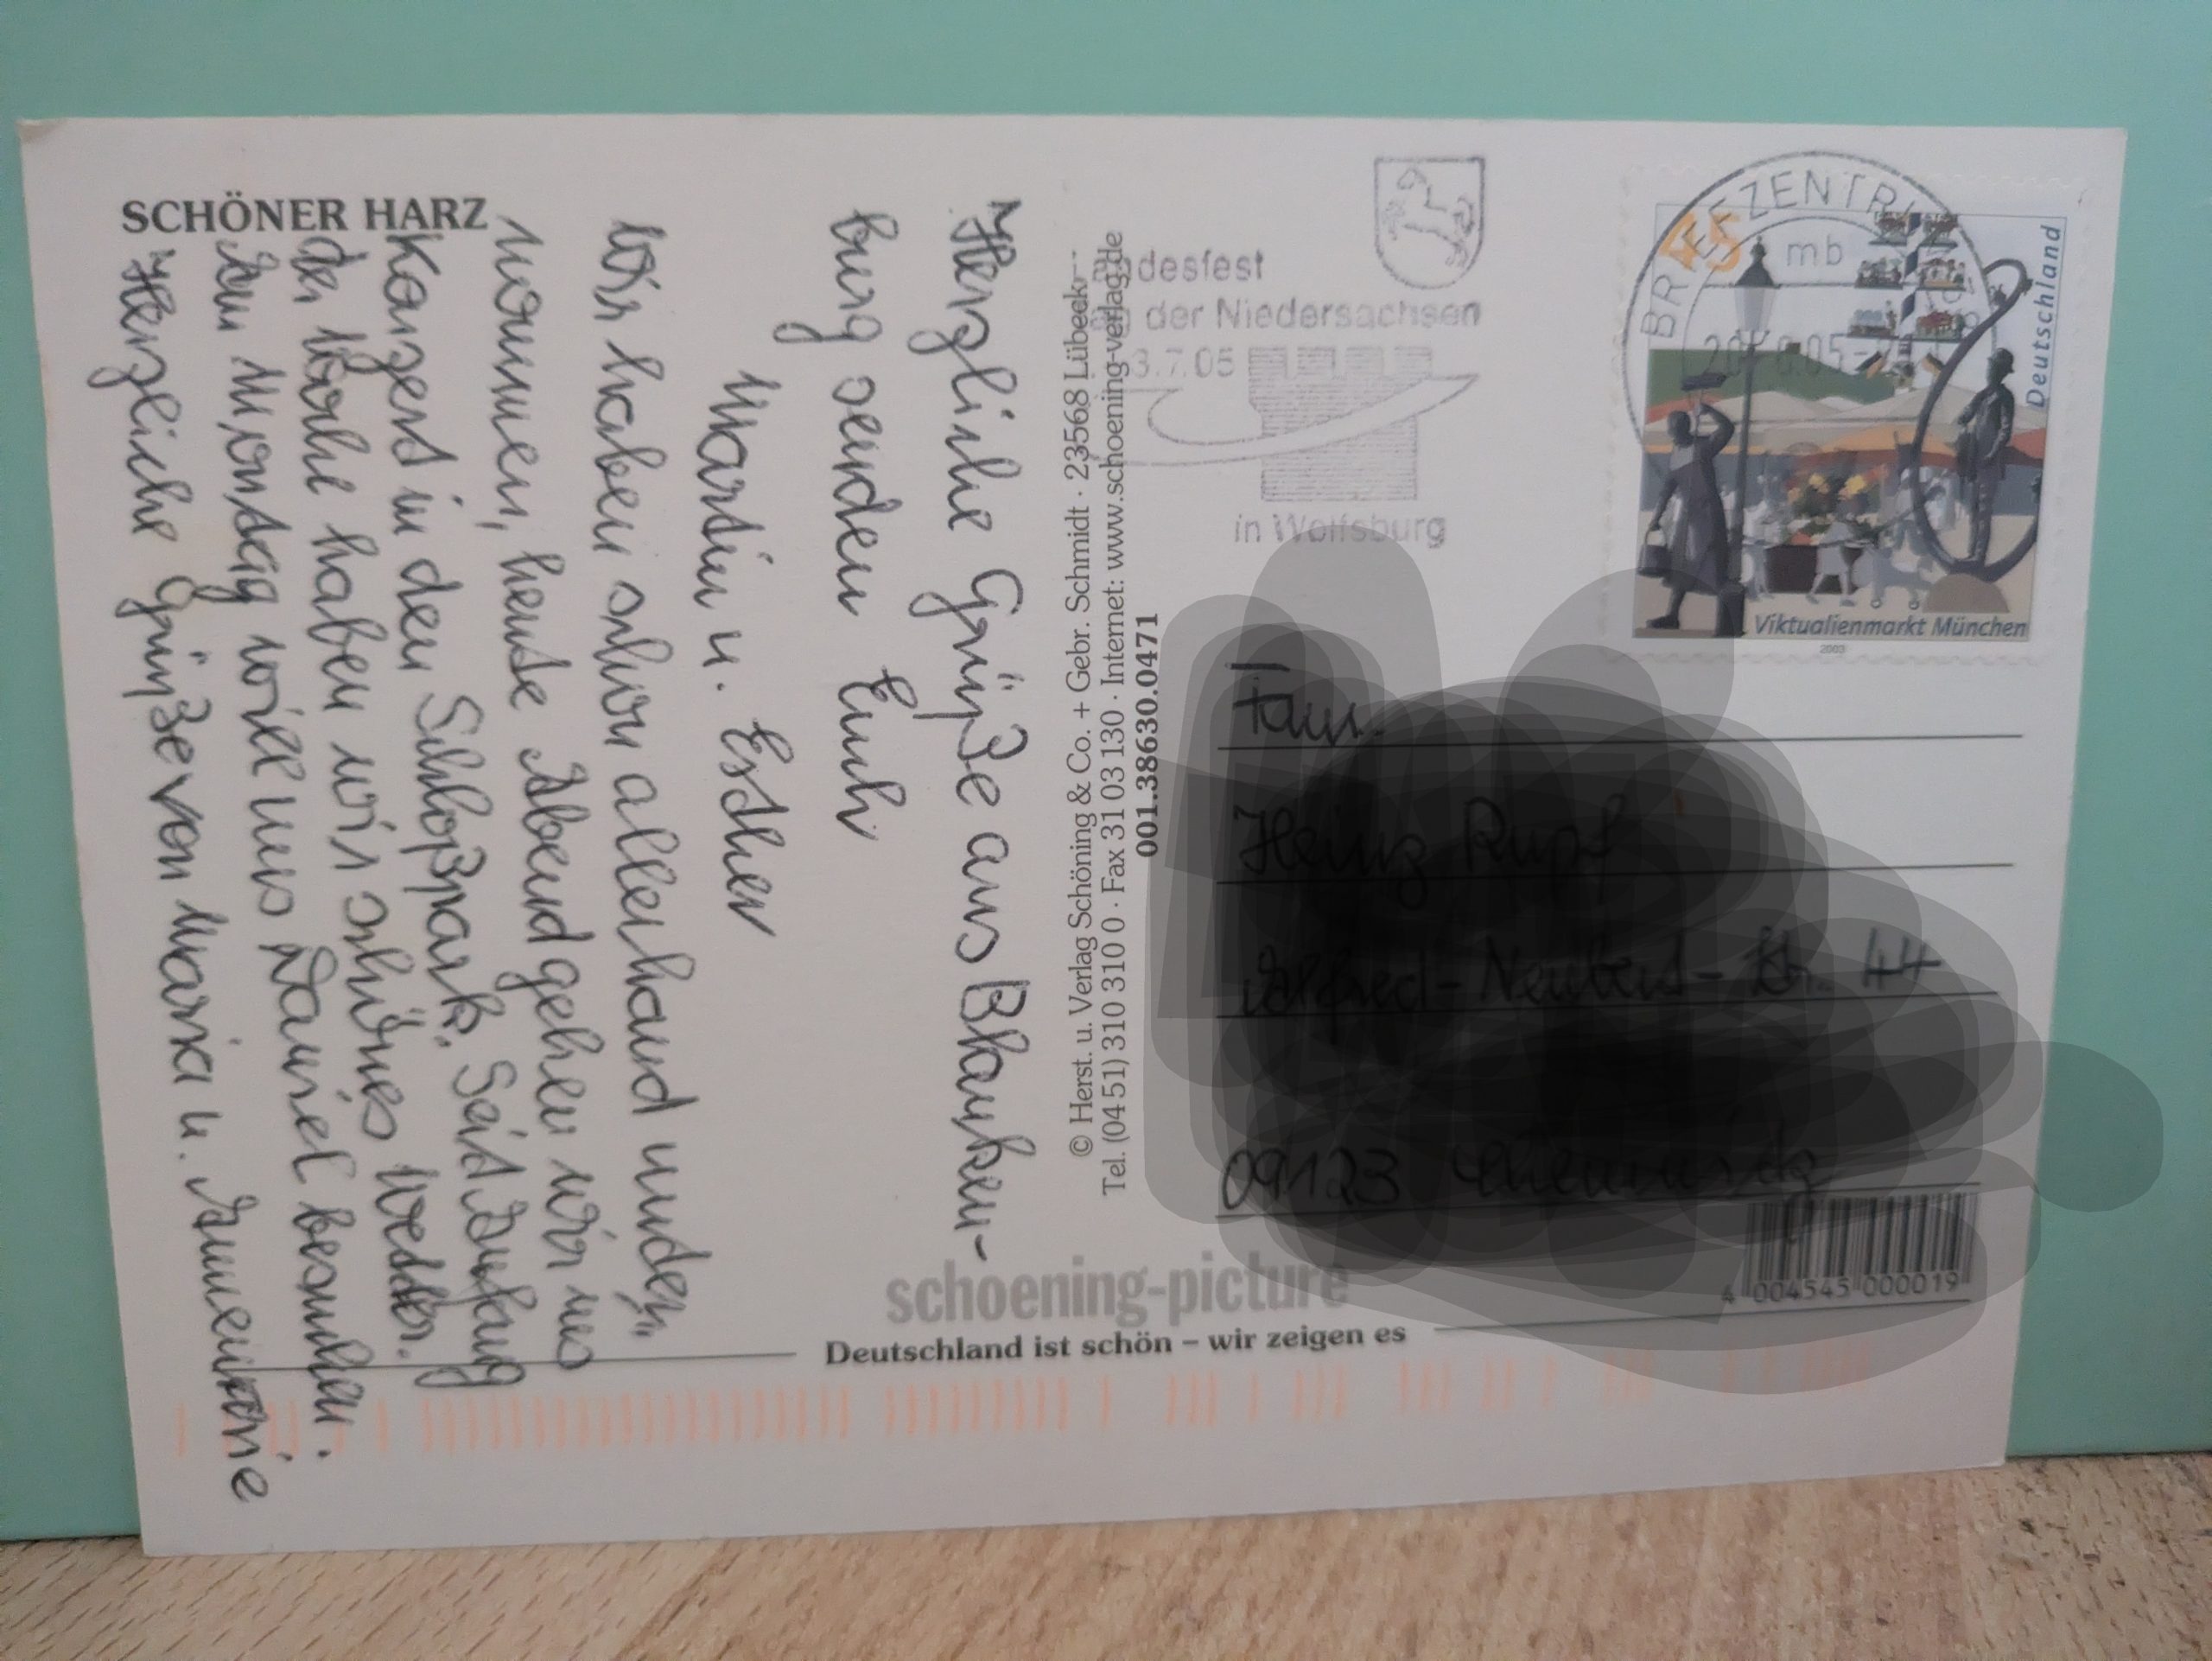 SCHÖNER HARZ
Herzliche Grüße aus Blanken-
burg senden Euch
Martin u. Esther
Wir haben schon allerhand unter-
nommen, heute Abend gehen wir ins
Konzert in den Schloßpark. Seit Anfang
der Woche haben wir schönes Wetter.
Am Montag will uns Daniel besuchen.
Herzliche Grüße von Maria u. Annemarie
© Herst. u. Verlag Schöning & Co. + Gebr. Schmidt · 23568 Lübeck
Tel. (04 51) 310 310 0 · Fax 31 03 130 · Internet: www.schoening-verlag.de
001.38630.0471
desfest
der Niedersachsen
3.7.05
in Wolfsburg
BRIEFZENTRUM
mb
45
Deutschland
Viktualienmarkt München
2003
4 004545 000019
schoening-picture
Deutschland ist schön – wir zeigen es